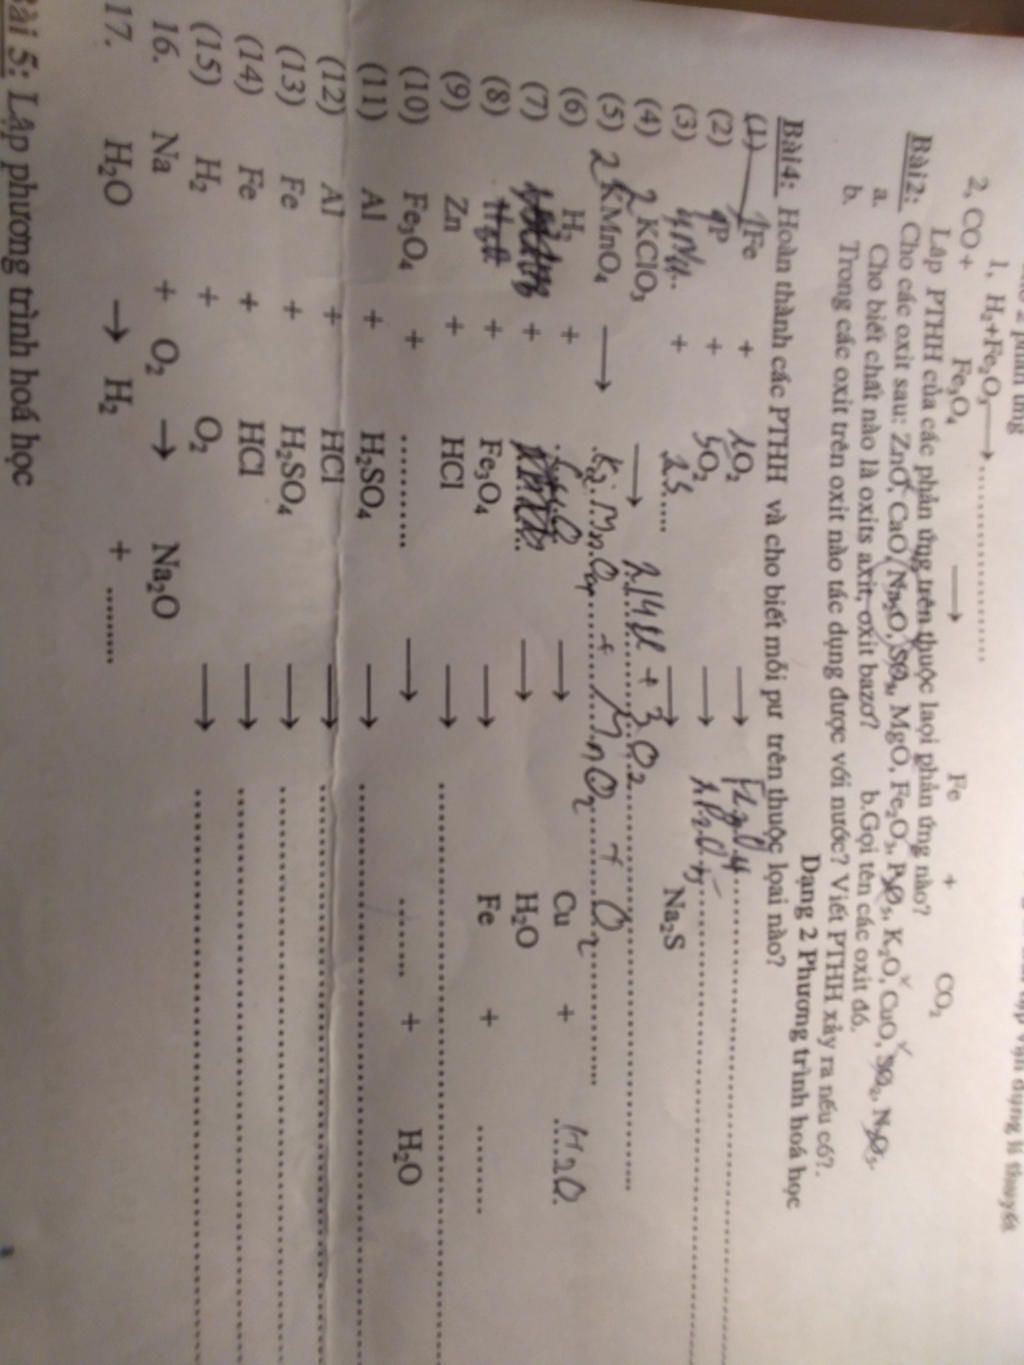 2 phản ứng
1, H₂+Fe₂O₃ → ................
2, CO + Fe₃O₄ → Fe + CO₂
Lập PTHH của các phản ứng trên thuộc laọi phản ứng nào?
Bài2: Cho các oxit sau: ZnO, CaO, Na₂O, SO₃, MgO, Fe₂O₃, P₂O₅, K₂O, CuO, SO₂, N₂O₅
a. Cho biết chất nào là oxits axit, oxit bazơ? b.Gọi tên các oxit đó.
b. Trong các oxit trên oxit nào tác dụng được với nước? Viết PTHH xảy ra nếu có?.
Dạng 2 Phương trình hoá học
Bài4: Hoàn thành các PTHH và cho biết mỗi pư trên thuộc lọai nào?
(1) Fe + O₂ → Fe₃O₄
(2) 4P + 5O₂ → 2P₂O₅
(3) + 2S → Na₂S
(4) 2KClO₃ → + 3O₂
(5) 2KMnO₄ → K₂MnO₄ + MnO₂ + O₂
(6) H₂ + → Cu + H₂O
(7) + → H₂O
(8) + Fe₃O₄ → Fe + ........
(9) Zn + HCl → ................
(10) Fe₃O₄ + .......... → ........ + H₂O
(11) Al + H₂SO₄ → ................
(12) Al + HCl → ................
(13) Fe + H₂SO₄ → ................
(14) Fe + HCl → ................
(15) H₂ + O₂ → ................
16. Na + O₂ → Na₂O
17. H₂O → H₂ + ........
Bài 5: Lập phương trình hoá học